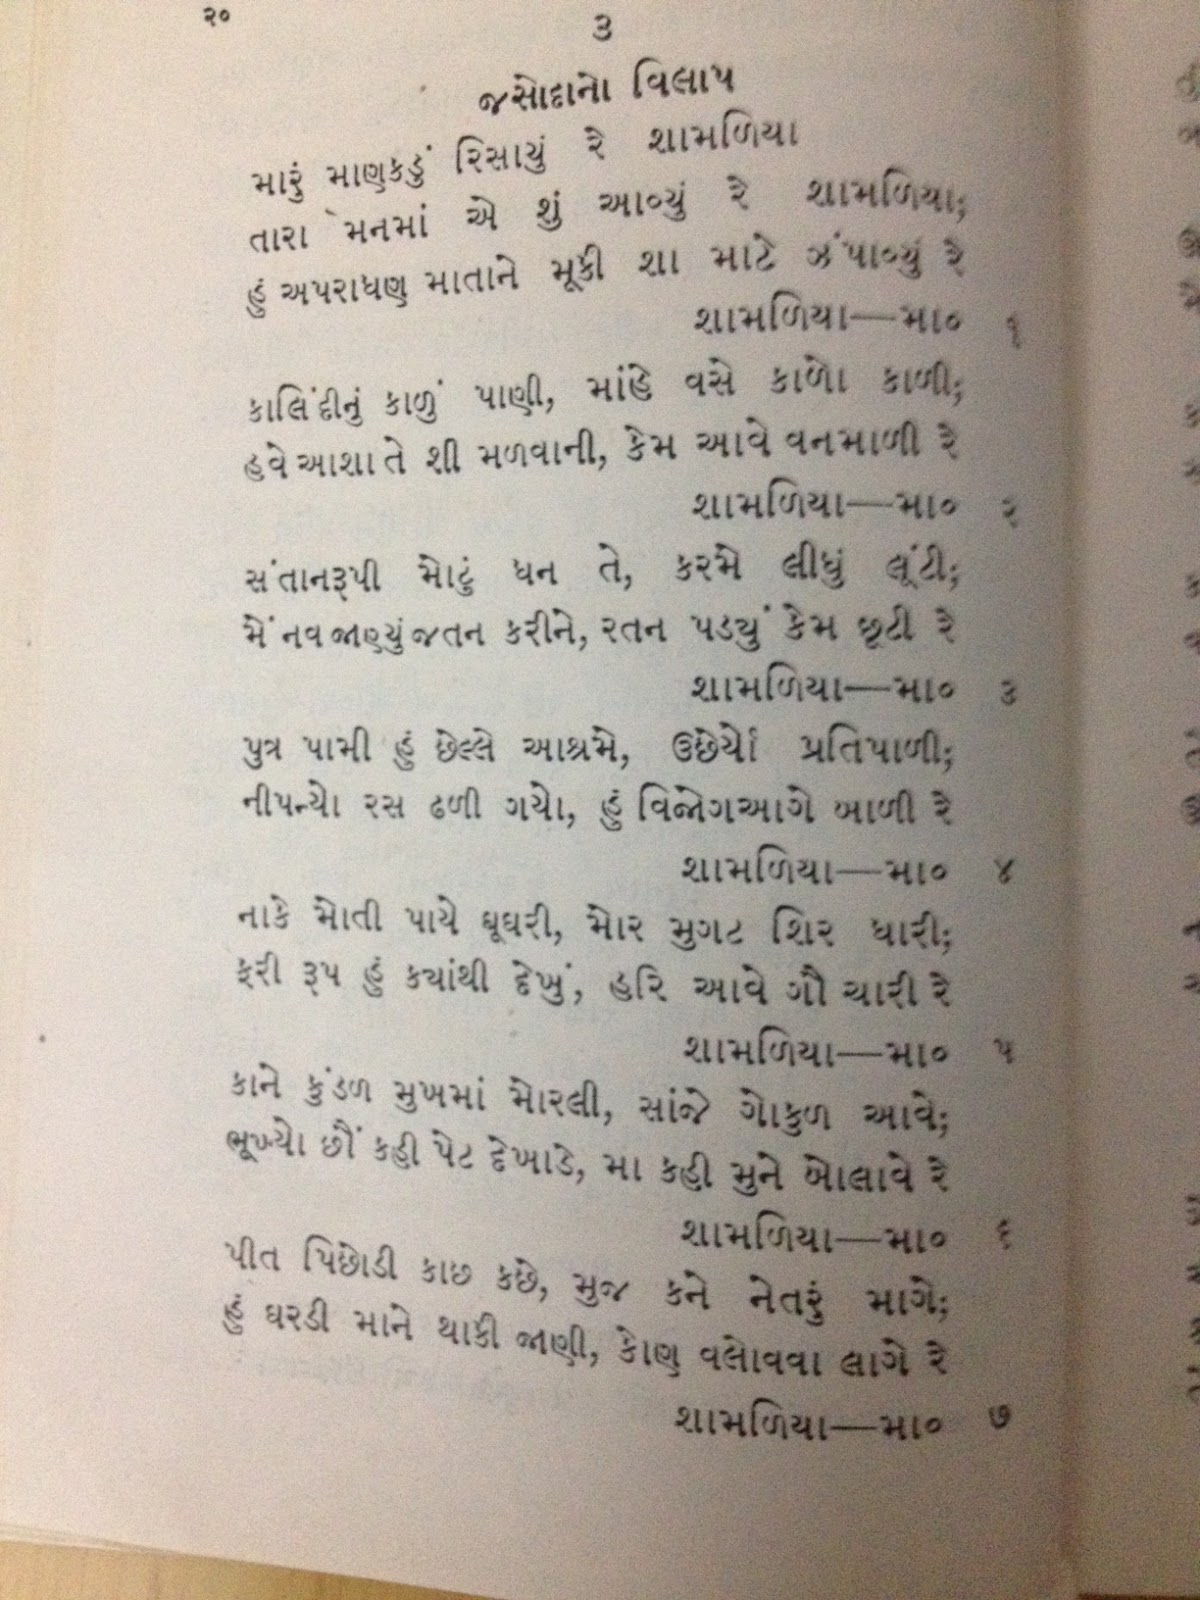 ૨૦
૩
જસોદાનો વિલાપ
મારું માણકડું રિસાયું રે શામળિયા
તારા મનમાં એ શું આવ્યું રે શામળિયા;
હું અપરાધણ માતાને મૂકી શા માટે ઝંપાવ્યું રે
શામળિયા—મા૦ ૧
કાલિંદીનું કાળું પાણી, માંહે વસે કાળો કાળી;
હવે આશા તે શી મળવાની, કેમ આવે વનમાળી રે
શામળિયા—મા૦ ૨
સંતાનરૂપી મોટું ધન તે, કરમે લીધું લૂંટી;
મેં નવ જાણ્યું જતન કરીને, રતન પડ્યું કેમ છૂટી રે
શામળિયા—મા૦ ૩
પુત્ર પામી હું છેલ્લે આશ્રમે, ઉછેર્યો પ્રતિપાળી;
નીપન્યો રસ ઢળી ગયો, હું વિજોગઆગે બાળી રે
શામળિયા—મા૦ ૪
નાકે મોતી પાયે ઘૂઘરી, મોર મુગટ શિર ધારી;
ફરી રૂપ હું ક્યાંથી દેખું, હરિ આવે ગૌ ચારી રે
શામળિયા—મા૦ ૫
કાને કુંડળ મુખમાં મોરલી, સાંજે ગોકુળ આવે;
ભૂખ્યો છૌં કહી પેટ દેખાડે, મા કહી મુને બોલાવે રે
શામળિયા—મા૦ ૬
પીત પિછોડી કાછ કછે, મુજ કને નેતરું માગે;
હું ઘરડી માને થાકી જાણી, કોણ વલોવવા લાગે રે
શામળિયા—મા૦ ૭